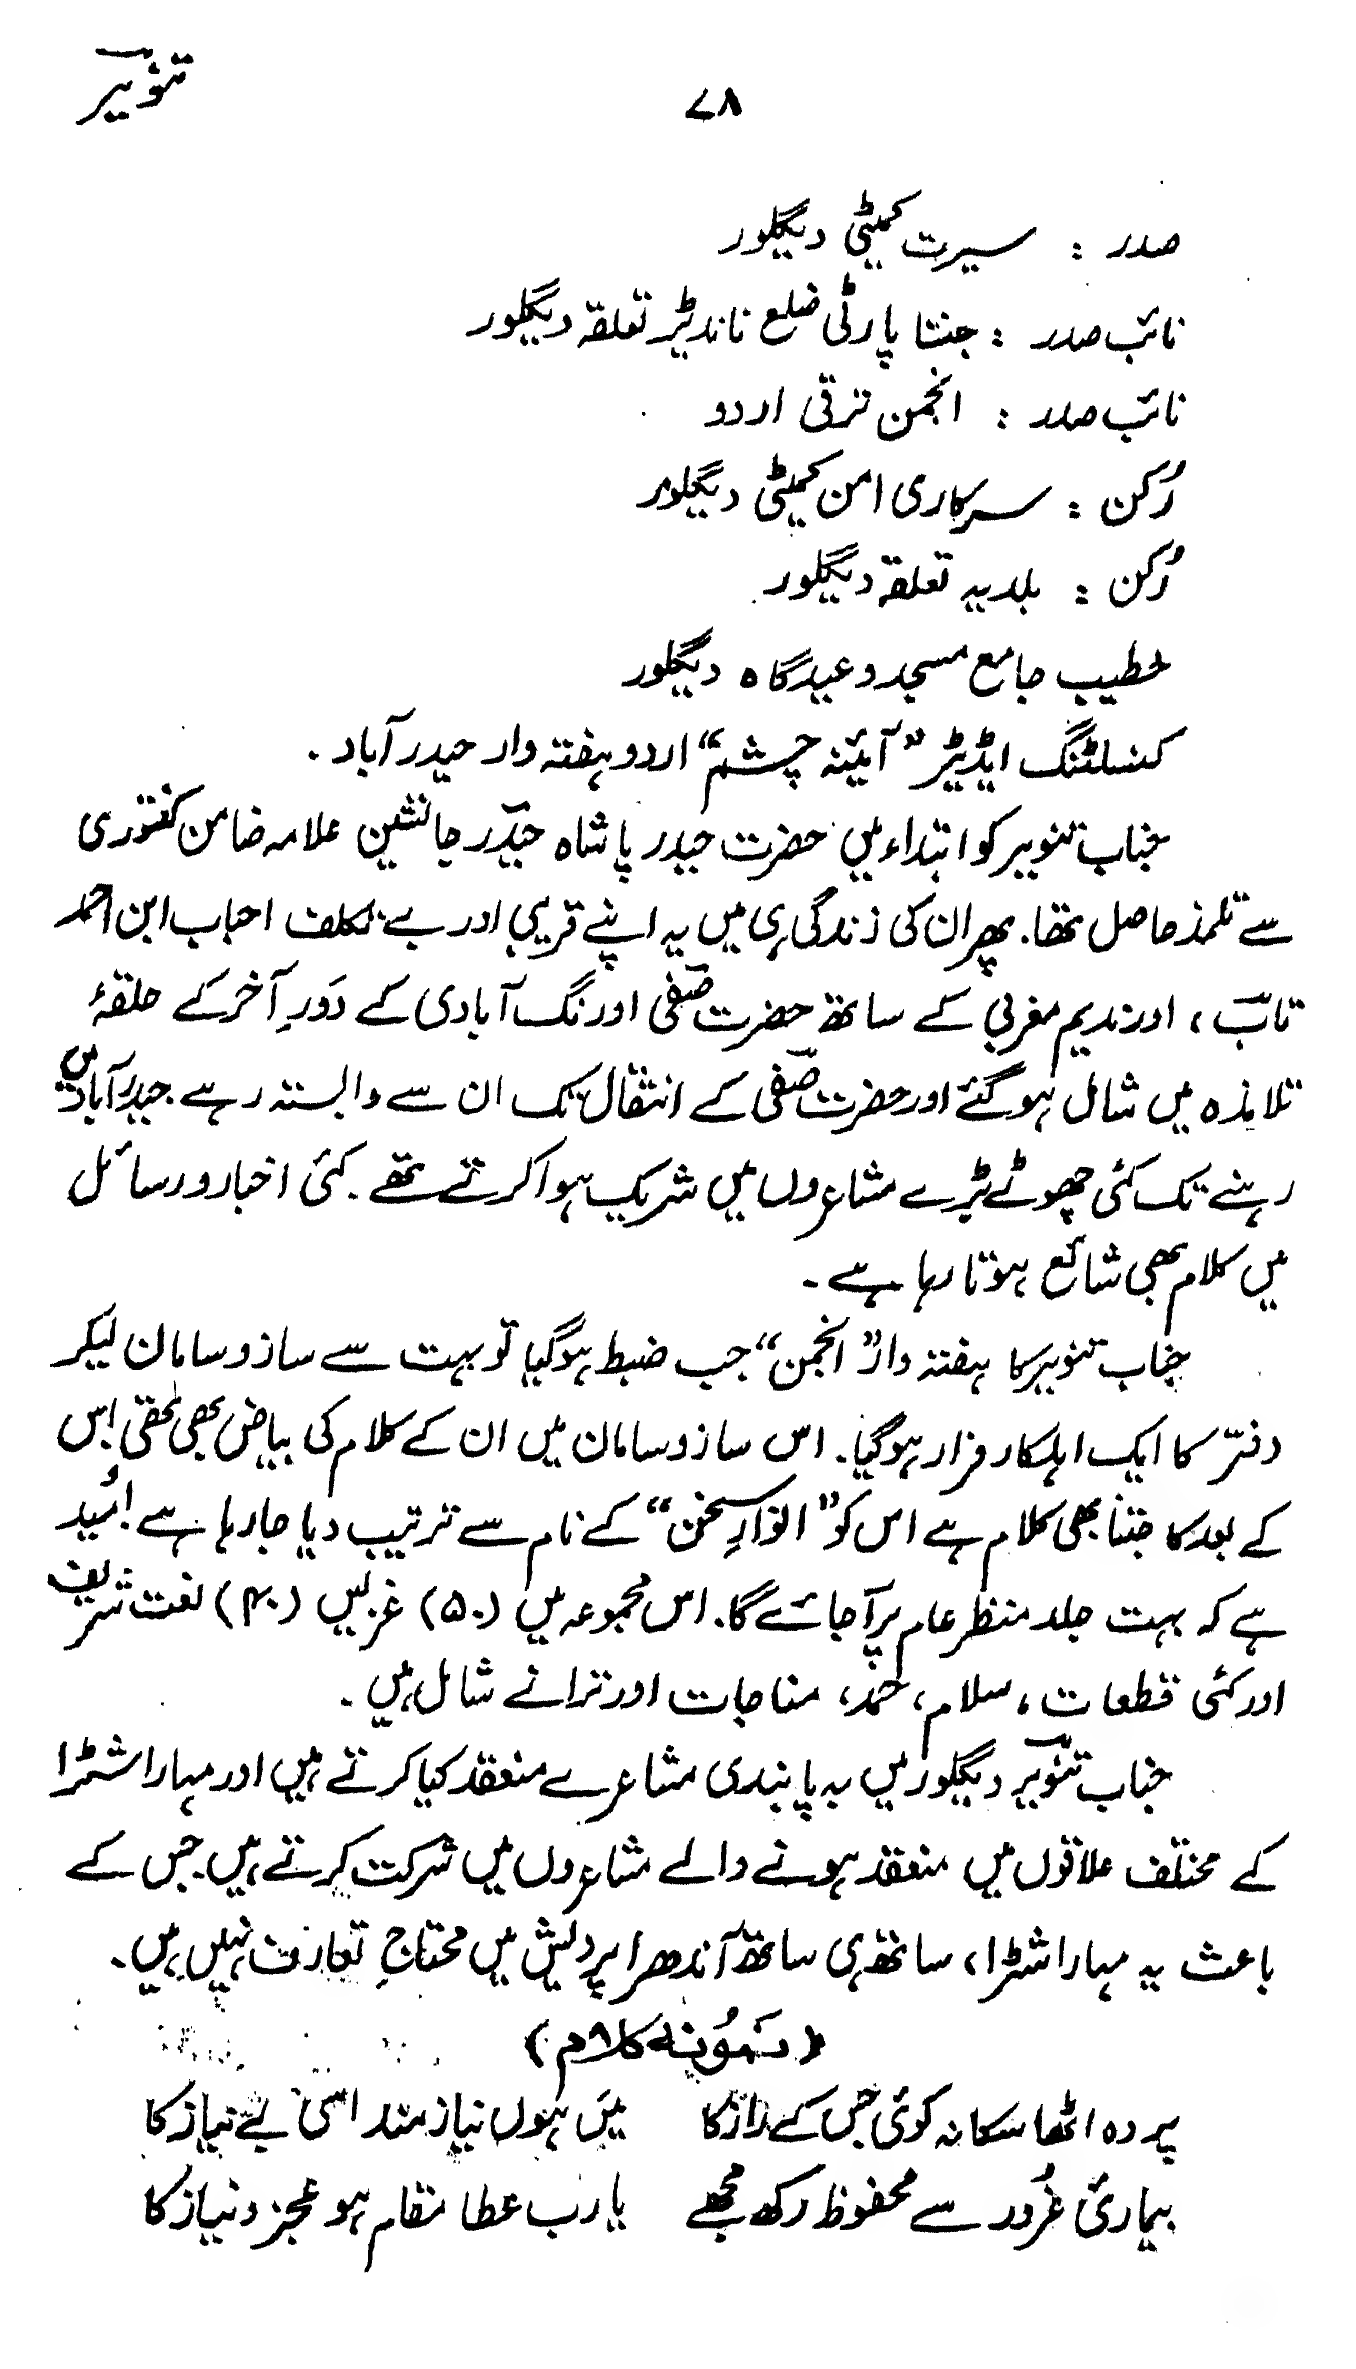 تنویرؔ
۷۸
صدر : سیرت کمیٹی دیگلور
نائب صدر : جنتا پارٹی ضلع ناندیڑ تعلقہ دیگلور
نائب صدر : انجمن ترقی اردو
رُکن : سرکاری امن کمیٹی دیگلور
رُکن : بلدیہ تعلقہ دیگلور
خطیب جامع مسجد و عیدگاہ دیگلور
کنسلٹنگ ایڈیٹر ”آئینہ چشم“ اردو ہفتہ وار حیدرآباد .
جناب تنویر کو ابتداء میں حضرت حیدر پاشاہ حیدؔر جانشین علامہ ضامن کنتوری
سے تلمذ حاصل تھا۔ پھر ان کی زندگی ہی میں یہ اپنے قریبی اور بے تکلف احباب ابن احمد
تابؔ ، اور ندیم مغربی کے ساتھ حضرت صفؔی اورنگ آبادی کے دَورِ آخر کے حلقۂ
تلامذہ میں شامل ہوگئے اور حضرت صفؔی کے انتقال تک ان سے وابستہ رہے۔ حیدرآباد میں
رہنے تک کئی چھوٹے بڑے مشاعروں میں شریک ہوا کرتے تھے۔ کئی اخبار و رسائل
میں کلام بھی شائع ہوتا رہا ہے۔
جناب تنویر کا ہفتہ وار ”انجمن“ جب ضبط ہوگیا تو بہت سے ساز و سامان لیکر
دفتر کا ایک اہلکار فرار ہوگیا۔ اس ساز و سامان میں ان کے کلام کی بیاض بھی تھی۔ اس
کے بعد کا جتنا بھی کلام ہے اس کو ”انوارِ سخن“ کے نام سے ترتیب دیا جارہا ہے۔ اُمید
ہے کہ بہت جلد منظر عام پر آجائے گا۔ اس مجموعہ میں (۵۰) غزلیں (۴۰) نعت شریف
اور کئی قطعات ، سلام ، حمد ، مناجات اور ترانے شامل ہیں ۔
جناب تنویرؔ دیگلور میں بہ پابندی مشاعرے منعقد کیا کرتے ہیں اور مہاراشٹرا
کے مختلف علاقوں میں منعقد ہونے والے مشاعروں میں شرکت کرتے ہیں۔ جس کے
باعث یہ مہاراشٹرا ، ساتھ ہی ساتھ آندھرا پردیش میں محتاجِ تعارف نہیں ہیں۔
(نمونۂ کلام)
پردہ اٹھا سکا نہ کوئی جس کے راز کا میں ہوں نیاز مند اسی بے نیاز کا
بیماریٔ غرُور سے محفوظ رکھ مجھے یارب عطا مقام ہو عجز و نیاز کا